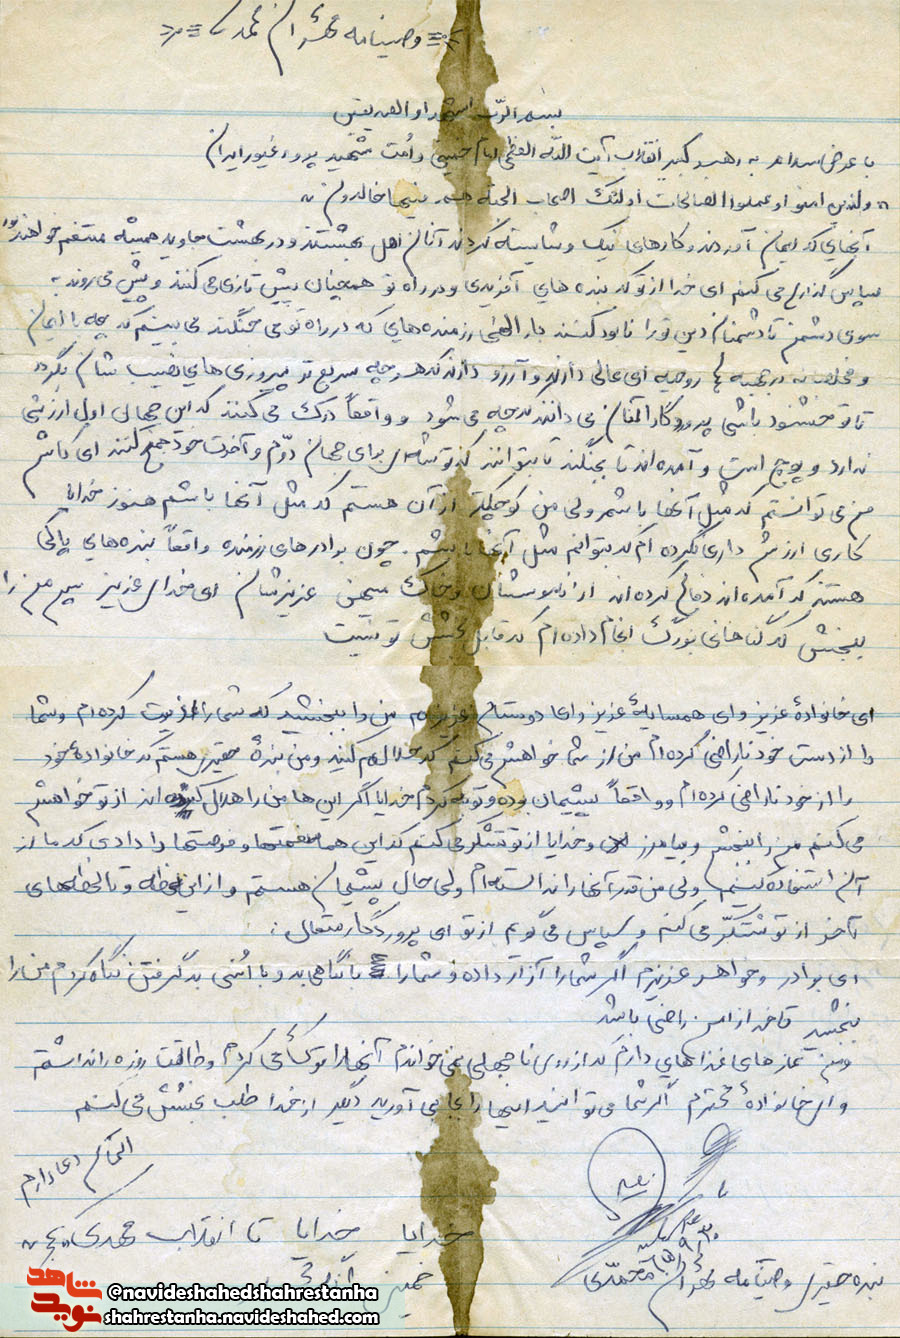 وصیتنامه مهران محمدی
بسم الرب الشهداء و الصدیقین
با عرض سلام به رهبر کبیر انقلاب آیت الله العظمی امام خمینی و امت شهید پرور غیور ایران
والذین امنو او عملوا الصالحات اولئک اصحاب الجنة هم فیها خالدون
آنهایی که ایمان آوردند و کارهای نیک و شایسته کردند آنان اهل بهشتند و در بهشت جاوید همیشه متنعم خواهند بود
سپاس گذاری می کنم ای خدا از تو که بنده هایی آفریدی و در راه تو همچنان پیش تازی می کنند و پیش می روند به
سوی دشمن تا دشمنان دین تو را نابود کنند بار الهی رزمنده هایی که در راه تو می جنگند می بینم که چه با ایمان
و مخلصانه در جبهه ها روحیه ای عالی دارند و آرزو دارند که هر چه سریع تر پیروزی هایی نصیب شان بگردد
تا تو خشنود باشی پروردگارا آنان می دانند که چه می شود و واقعاً درک می کنند که این جهان اول ارزشی
ندارد و پوچ است و آمده اند تا بجنگند تا بتوانند که توشه ای برای جهان دوّم و آخرت خود جمع کنند ای کاش
من می توانستم که مثل آنها باشم ولی من کوچکتر از آن هستم که مثل آنها باشم هنوز خدایا
کاری ارزش داری نکرده ام که بتوانم مثل آنها باشم. چون برادرهای رزمنده واقعاً بنده های پاکی
هستند که آمده اند دفاع کرده اند از ناموستان و خاک میهن عزیزشان ای خدای عزیز پس من را
ببخش که گناهانی بزرگ انجام داده ام که قابل بخشش تو نیست
ای خانوادهٔ عزیز و ای همسایهٔ عزیز و ای دوستان عزیزم من را ببخشید که شما را اذیت کرده ام و شما
را از دست خود ناراضی کرده ام من از شما خواهش می کنم که حلالم کنید و من بندهٔ حقیری هستم که خانوادهٔ خود
را از خود ناراضی کرده ام و واقعاً پشیمان بوده و توبه کردم خدایا اگر این ها من را هلال کرده اند از تو خواهش
می کنم من را ببخش و بیامرز و خدایا از تو تشکر می کنم که این همه نعمتها و فرصتها را دادی که ما از
آن استفاده کنیم ولی من قدر آنها را ندانسته ام ولی حال پشیمان هستم و از این لحظه و تا لحظه های
آخر از تو تشکّر می کنم و سپاس می گویم از تو ای پروردگار متعال :
ای برادر و خواهر عزیزم اگر شما را آزار داده و شما را با نگاهی بد و با
بخشید تا خدا از من راضی باشد
و من نماز های غذا هایی دارم که از روی ناجهلی نمی خواندم آنها را ترک می کردم و طاقت روزه را نداشتم
و ای خانوادهٔ محترم اگر شما می توانید اینها را بجا بی آورید دیگر از خدا طلب بخشش می کنم
التماس دعا دارم
خدایا خدایا تا انقلاب مهدی
خمینی
بنده حقیر وصیتنامه مهران محمدی
@navideshahedshahrestanha
shahrestanha.navideshahed.com
نوید شاهد